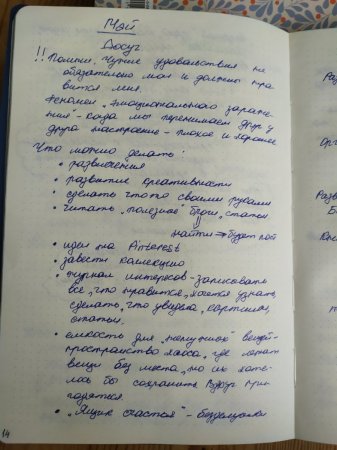 Май
Досуг
!! Помни. Чужие удовольствия не
обязательно мои и должно нра
вится мне.
Феномен „эмоционального зараже-
ния" - когда мы перенимаем друг у
друга настроение - плохое и хорошее
Что можно делать:
• развлечения
• развитие креативности
• сделать что-то своими руками
• читать „полезное блоги, статьи
найти → будет
• идеи на Pinterest
• завести коллекцию
• журнал интересов - записывать
все, что нравится, хочется узнать,
сделать, что увидела, картинки,
статьи.
• емкость для „ненужных" вещей-
пространство хаоса, где лежат
вещи без места, но их хоте-
лось бы сохранить. Вдруг при
годятся.
• „Ящик счастья" - безделушки
14
Ра
Орг
Разв
Б